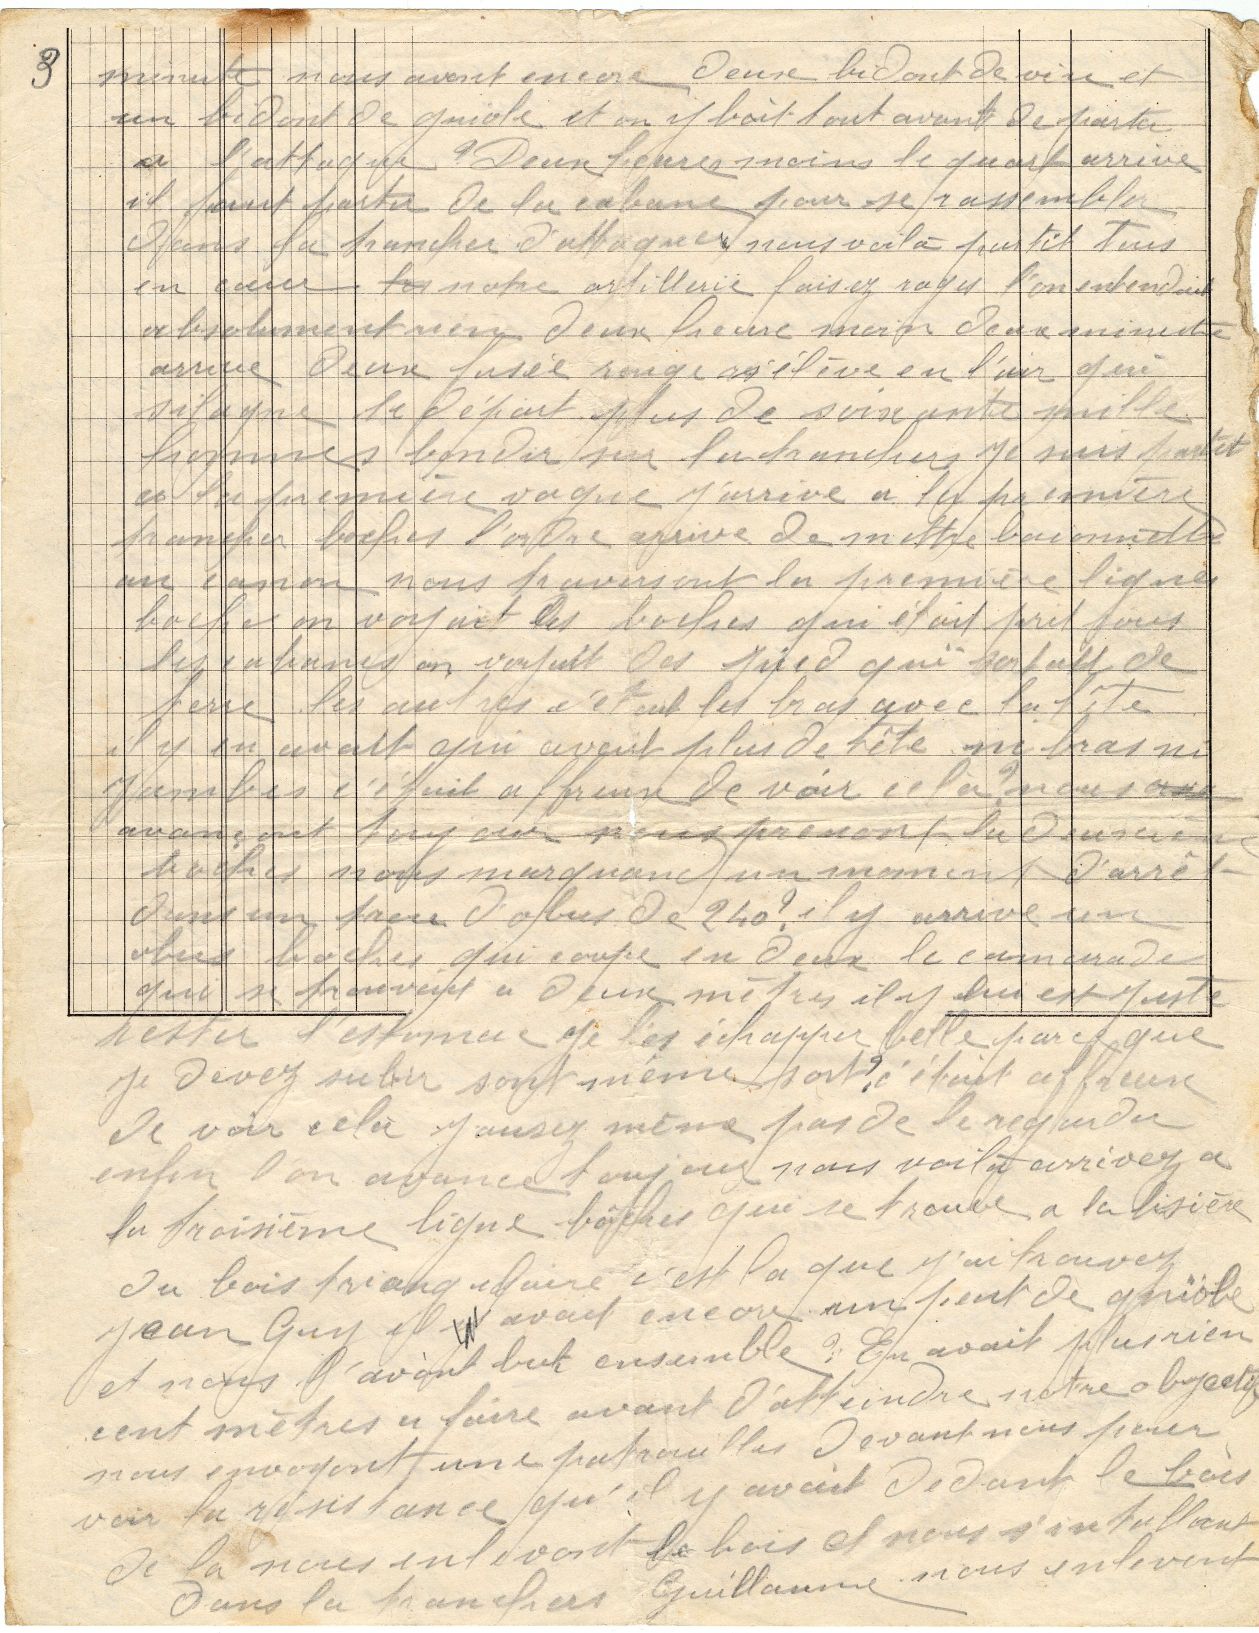 3
minute nous avont encore deux bidont de vin et
un bidont de gniole et on y boit tout avant de partir
a l'attaque ? Deux heures moins le quart arrive
il faut partir de la cabane pour se rassembler
dans la trancher d'attaque, nous voilà partit tous
en cœur notre artillerie faisez rages l'on entendait
absolument rien deux heure moin deux minute
arrive deux fusée rouge s'élève en l'air qui
silagne le départ plus de soixante mille
hommes bondir sur la trancher, je suis partit
a la première vague j'arrive a la première
trancher boches l'ordre arrive de mettre baionnette
au canon nous traversont la première lignes
boche on voyait les boches qui était prit sous
les cabanes on voyait des pied qui sortait de
terre les autres c'était les bras avec la tête
il y en avait qui avait plus de tête ni bras ni
jambes c'était affreux de voir celà ? nous
avançont toujour nous prenont la deuxième
boches nous marquand un moment d'arrêt
dans un trou d'obus de 240 ? il y arrive un
obus boches qui coupe en deux le camarade
qui se trouvait a deux mètres il y lui est juste
rester l'estomac je l'es échapper belle parce que
je devez subir sont même sort ? c'était affreux
de voir celà j'ausez même pas de le regarder
enfin l'on avance toujour nous voilà arrivez a
la troisième ligne bôches qui se trouve a la lisière
du bois triangulaire c'est la que j'ai trouvez
Jean Guy il avait encore un peut de gniôle
et nous l'avont but ensemble ? En avait plus rien
cent mètres a faire avant d'atteindre notre objectif
nous envoyont une patrouilles devant nous pour
voir la résistance qu'il y avait dedant le bois
de la nous enlevont le bois et nous s'intallont
dans la tranchers Guillaume nous enlevont